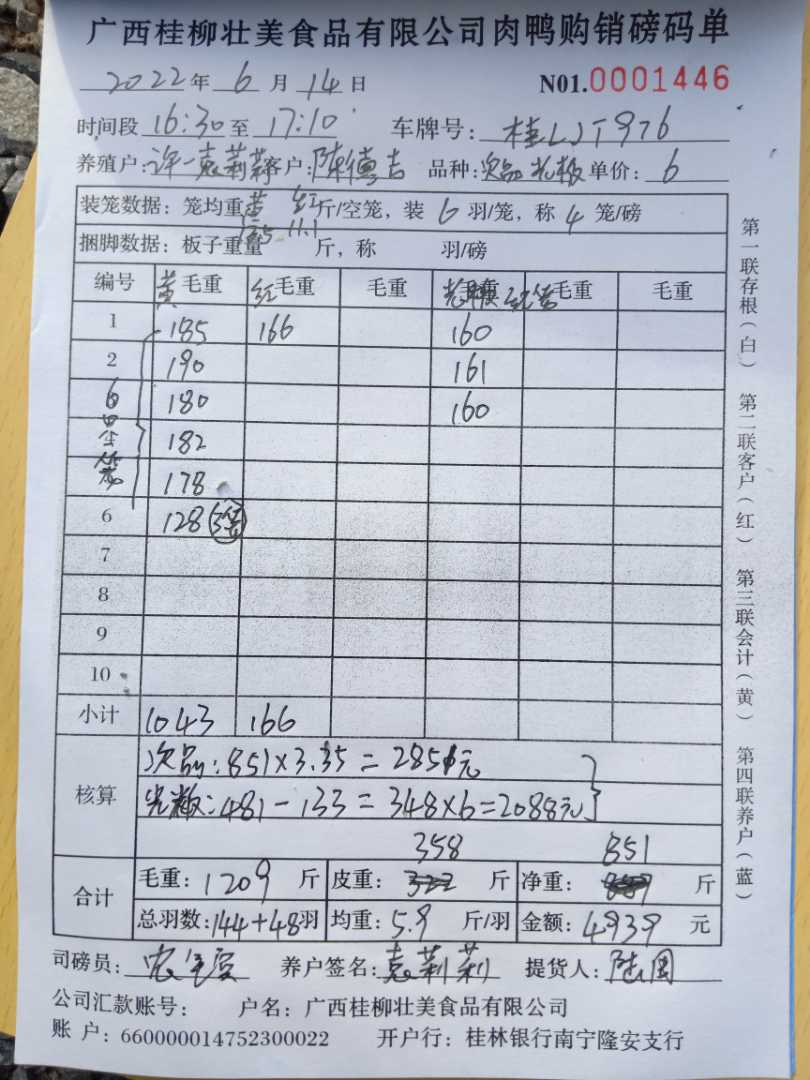 广西桂柳壮美食品有限公司肉鸭购销磅码单
2022年6月14日 N01.0001446
时间段16:30至17:10 车牌号:桂LJT976
养殖户:许一袁莉莉 客户:陈德吉 品种:次品光板 单价:6
装笼数据:笼均重黄 红 斤/空笼,装6羽/笼,称4笼/磅
11.1
捆脚数据:板子重量 斤,称 羽/磅
编号 黄毛重 红毛重 毛重 毛重 毛重 毛重
1 185 166 160
2 190 161
6 180 160
182
178
6 128
7
8
9
10
小计 1043 166
核算 次品:851×3.35=2851元
光板:481-133=348×6=2088元
358 851
合计 毛重:1209斤 皮重: 斤 净重: 斤
总羽数:144+48羽 均重:5.9斤/羽 金额:4939元
司磅员: 养户签名:袁莉莉 提货人:
公司汇款账号: 户名:广西桂柳壮美食品有限公司
账 户:660000014752300022 开户行:桂林银行南宁隆安支行
第一联存根(白) 第二联客户(红) 第三联会计(黄) 第四联养户(蓝)